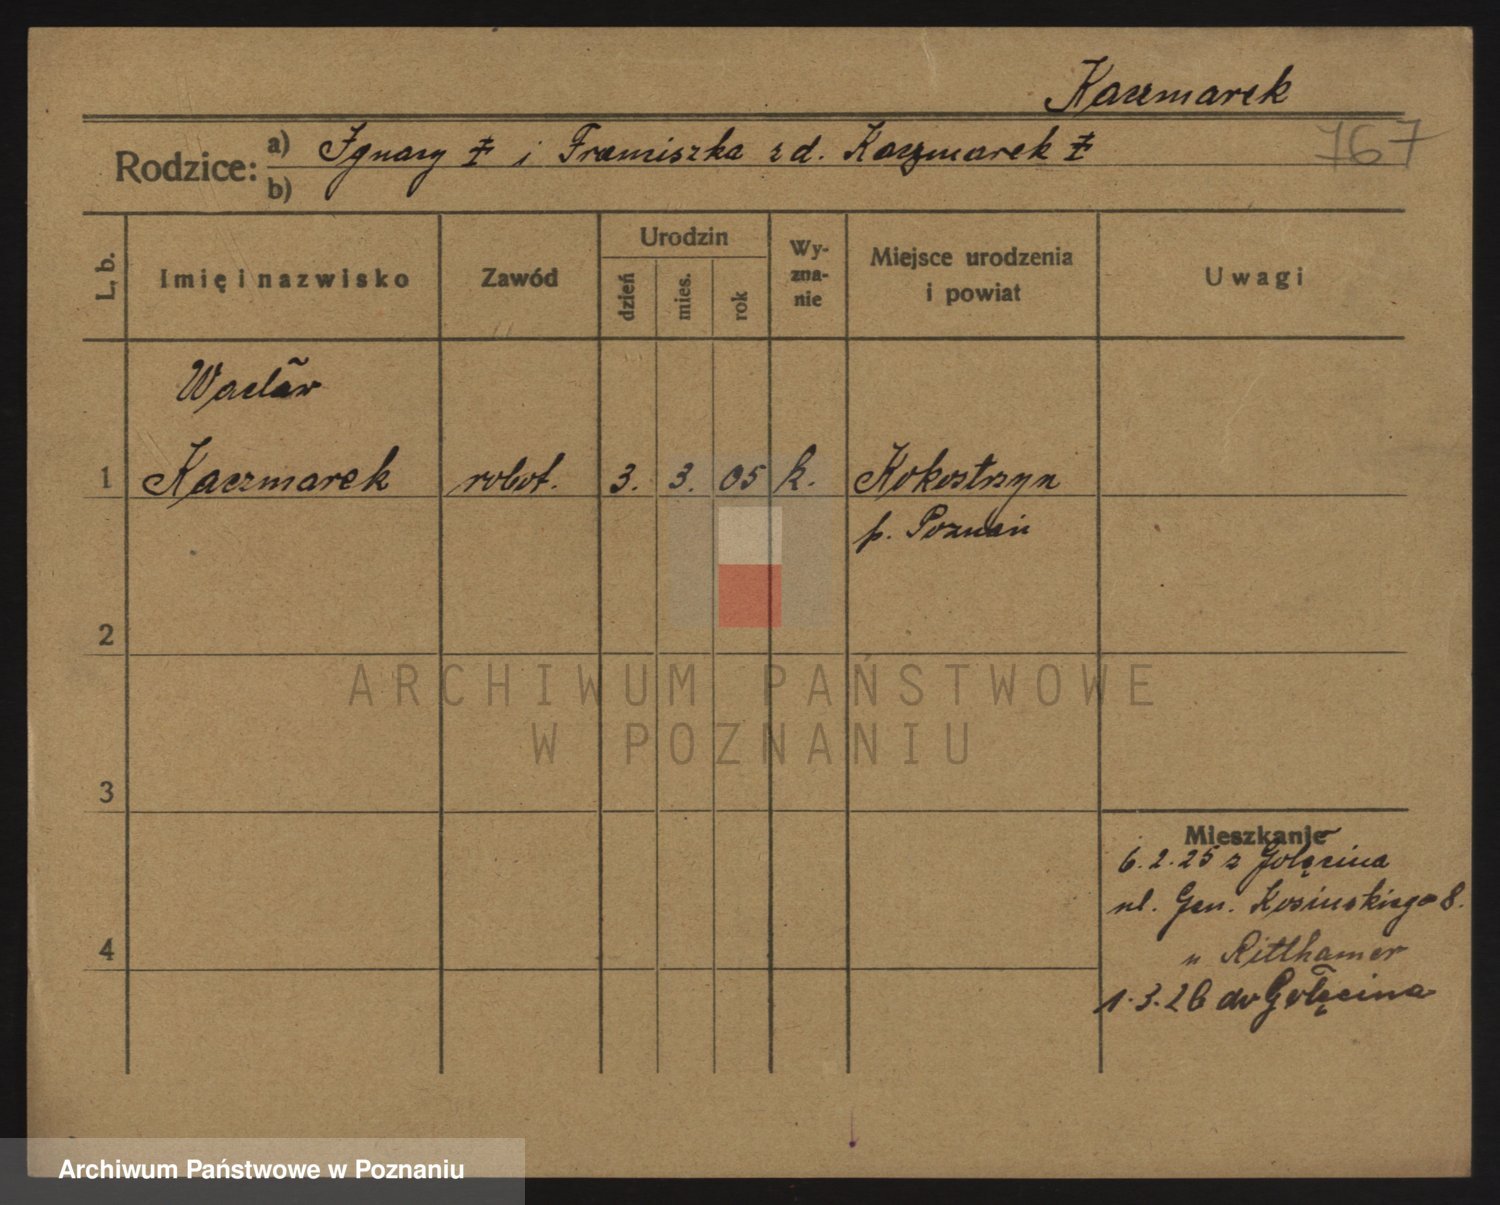 Kaczmarek
767
Rodzice: a) Ignacy ‡ i Franciszka z d. Kaczmarek ‡
b)
L. b.
Imię i nazwisko
Zawód
Urodzin
dzień
mies.
rok
Wy-
zna-
nie
Miejsce urodzenia
i powiat
Uwagi
Wacław
1 Kaczmarek robot. 3. 3. 05 k. Kokostrzyn
p. Poznań
2
ARCHIWUM PAŃSTWOWE
W POZNANIU
3
Mieszkanie
6.2.25 z Golęcina
ul. Gen. Kosińskiego 8.
u Ritthamer
4
1.3.26 do Golęcina
Archiwum Państwowe w Poznaniu